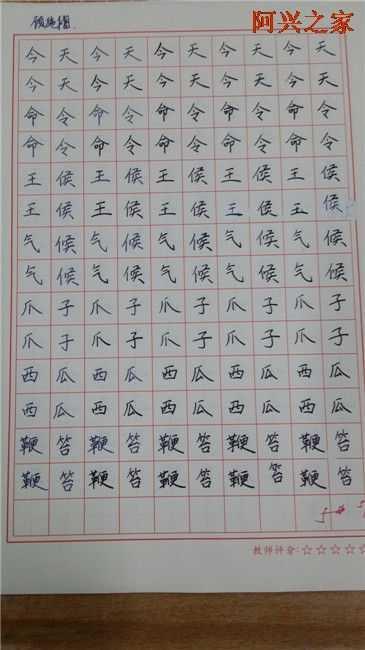 阿兴之家
今天今天今天今天今天
今天今天今天今天今天
命令命令命令命令命令
命令命令命令命令命令
王侯王侯王侯王侯王侯
王侯王侯王侯王侯王侯
气候气候气候气候气候
气候气候气候气候气候
爪子爪子爪子爪子爪子
爪子爪子爪子爪子爪子
西瓜西瓜西瓜西瓜西瓜
西瓜西瓜西瓜西瓜西瓜
鞭笞鞭笞鞭笞鞭笞鞭笞
鞭笞鞭笞鞭笞鞭笞鞭笞
教师评分:☆☆☆☆☆